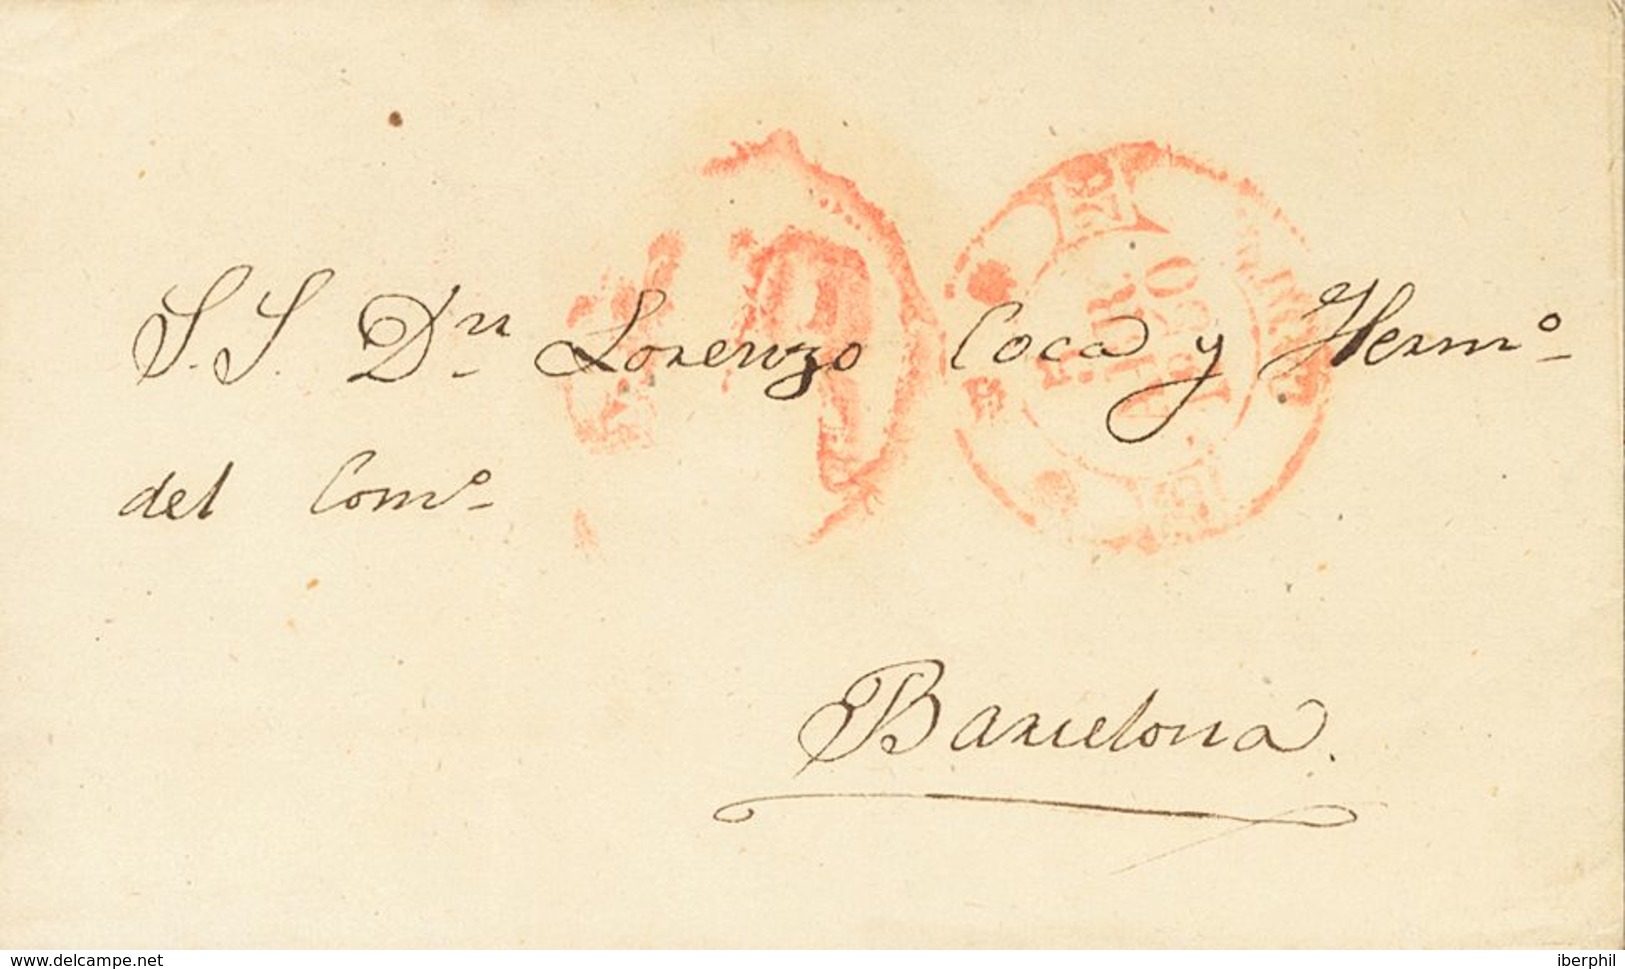 S. S. Dn Lorenzo Coca y Hermº
del Comº
Barcelona.
www.delcampe.net
iberphil